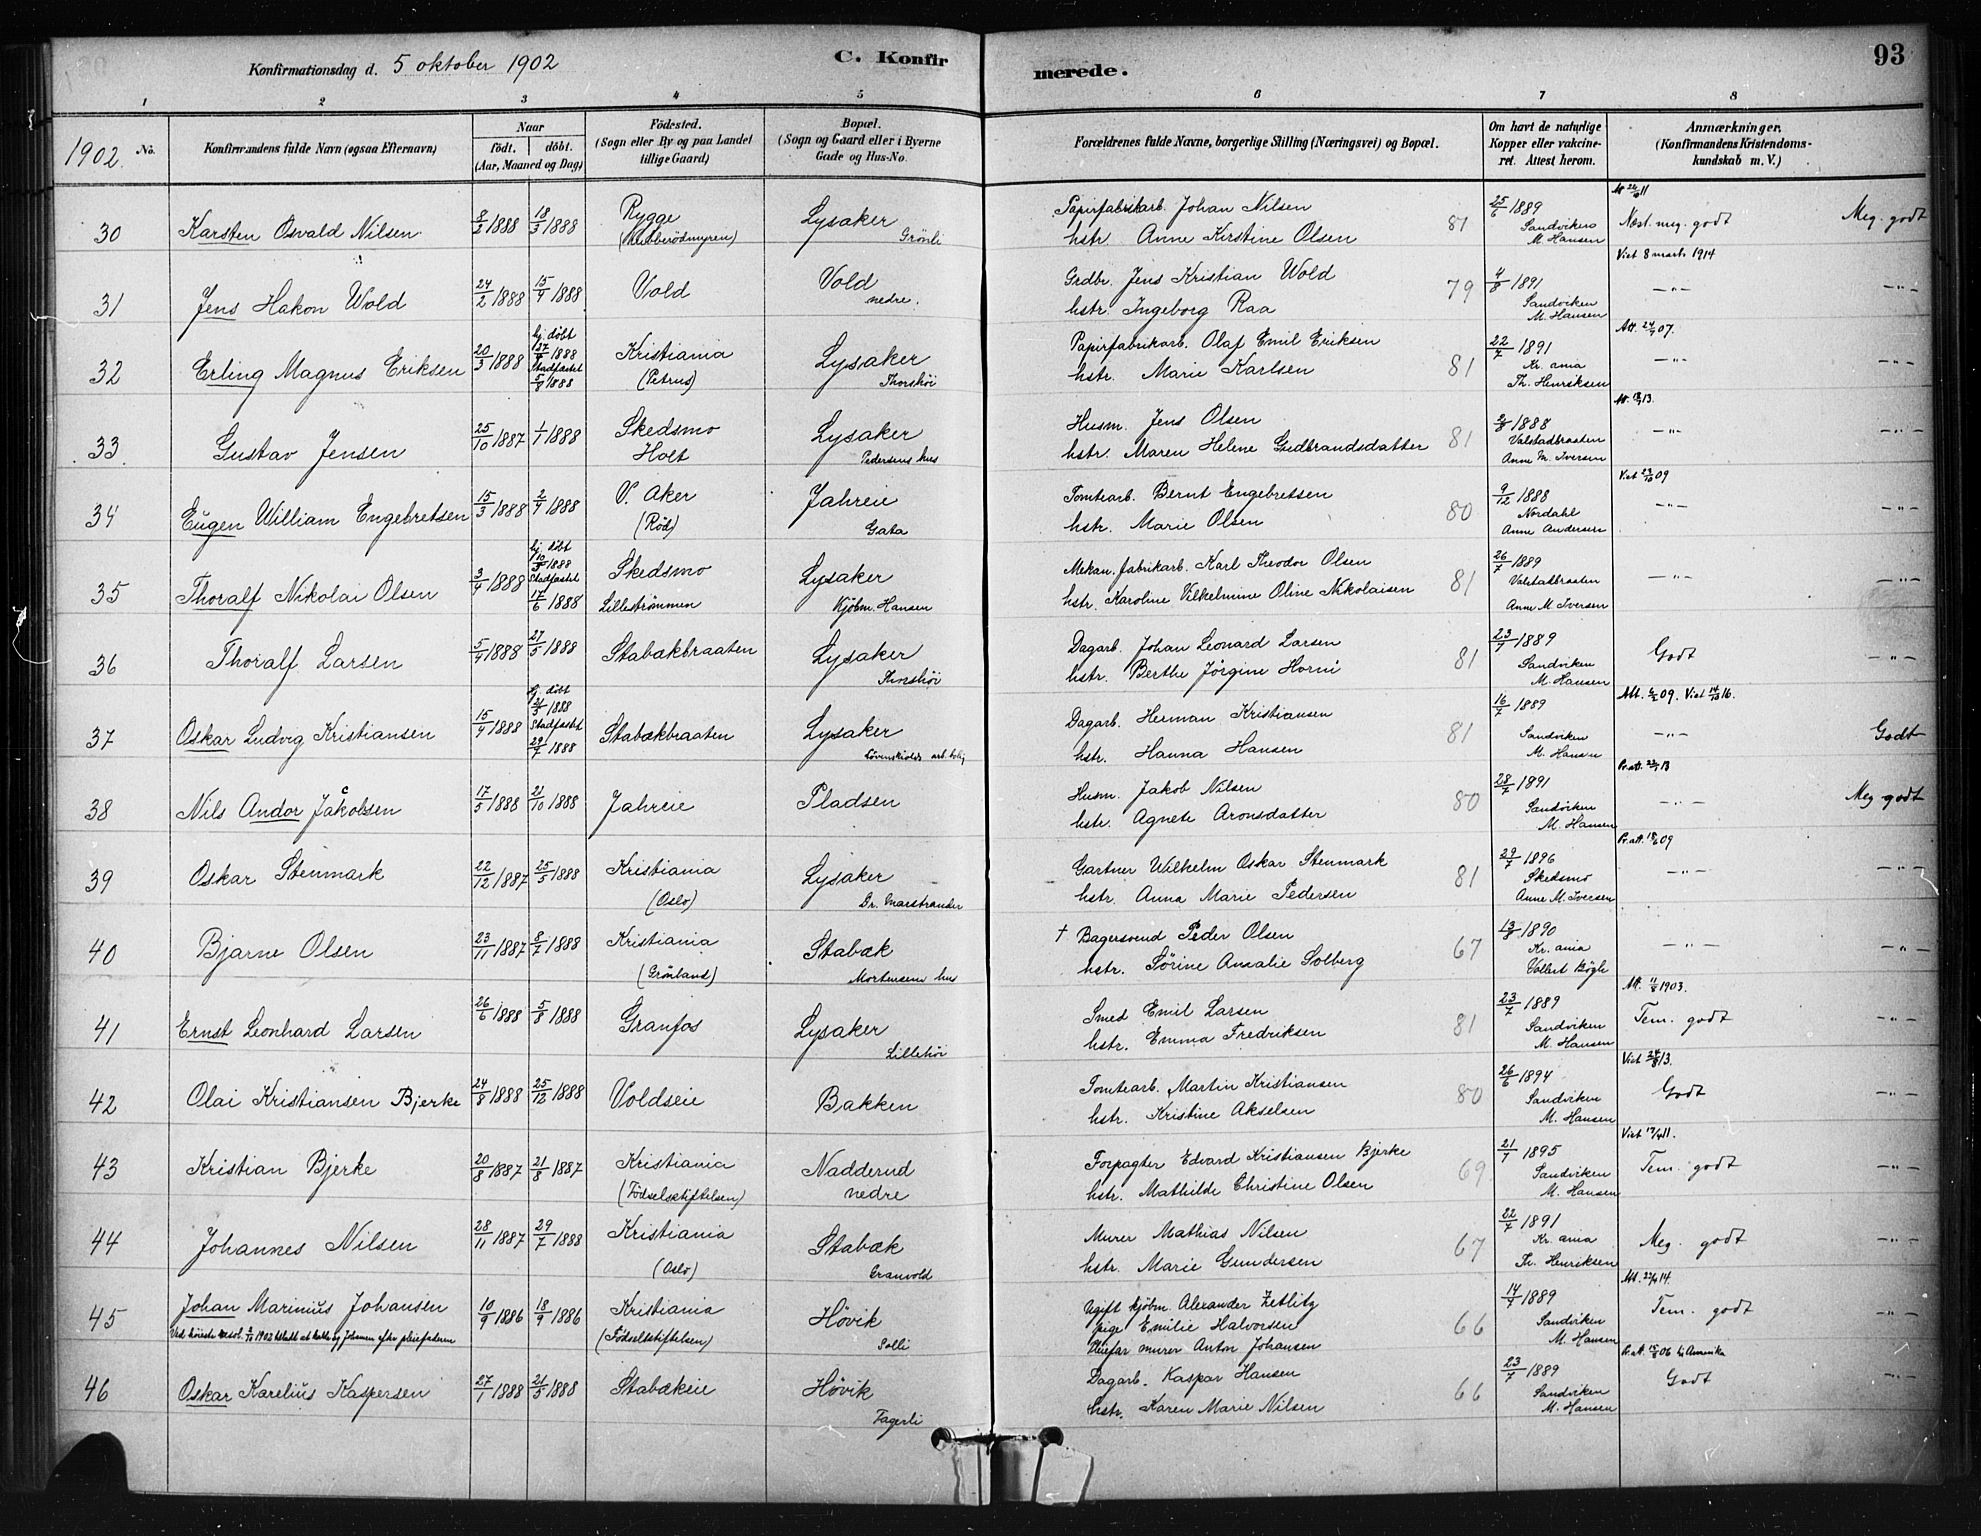 Konfirmationsdag d. 5 oktober 1902
C. Konfirmerede.
93
1 2 3 4 5 6 7 8
1902. No.
Konfirmandens fulde Navn (ogsaa Efternavn)
Naar
födt. döbt.
(Aar, Maaned og Dag)
Födested.
(Sogn eller By og paa Landet
tillige Gaard)
Bopæl.
(Sogn og Gaard eller i Byerne
Gade og Hus-No.
Forældrenes fulde Navne, borgerlige Stilling (Næringsvei) og Bopæl.
Om havt de naturlige
Kopper eller vakcine-
ret. Attest herom.
Anmærkninger.
(Konfirmandens Kristendoms-
kundskab m. V.)
30 Karsten Osvald Nilsen 8/2 1888 18/3 1888 Rygge Lysaker Grönli
Papirfabrikarb. Johan Nilsen
hstr. Anne Kirstine Olsen 81 25/6 1889 Sandviken M. Hansen Næst. meg. godt Meg. godt
31 Jens Hakon Wold 24/2 1888 15/4 1888 Vold Vold nedre.
Grdbr. Jens Kristian Wold
hstr. Ingeborg Raa 79 4/8 1891 Sandviken M. Hansen Viet 8 marts 1914 — " — — " —
32 Erling Magnus Eriksen 20/3 1888 hj. döbt 1888 Stadfæstet 5/8 1888 Kristiania (Petrus) Lysaker Thorshöi
Papirfabrikarb. Olaf Emil Eriksen
hstr. Marie Karlsen 81 22/7 1891 Kr.ania Th. Henriksen — " — — " —
33 Gustav Jensen 25/10 1887 1/1 1888 Skedsmo Holt Lysaker Pedersens hus
Husm. Jens Olsen
hstr. Maren Helene Gudbrandsdatter 81 2/8 1888 Valstadbraaten Anne M. Iversen — " — — " —
34 Eugen William Engebretsen 15/3 1888 2/4 1888 V. Aker (Röd) Jahreie Gata
Tomtearb. Bernt Engebretsen
hstr. Marie Olsen 80 9/12 1888 Nordahl Anne Andersen — " — — " —
35 Thoralf Nikolai Olsen 3/4 1888 hj. döbt 1888 Stadfæstet 17/6 1888 Skedsmo Lilleströmmen Lysaker Kjöbm. Hansen
Mekan. fabrikarb. Karl Theodor Olsen
hstr. Karoline Vilhelmine Oline Nikolaisen 81 26/7 1889 Valstadbraaten Anne M Iversen — " — — " —
36 Thoralf Larsen 5/4 1888 27/5 1888 Stabækbraaten Lysaker
Dagarb. Johan Leonard Larsen
hstr. Berthe Jörgine Horni 81 23/7 1889 Sandviken M. Hansen Godt — " —
37 Oskar Ludvig Kristiansen 15/4 1888 hj. döbt 1888 Stadfæstet 29/7 1888 Stabækbraaten Lysaker Lövenskiolds arb. bolig
Dagarb. Herman Kristiansen
hstr. Hanna Hansen 81 16/7 1889 Sandviken M. Hansen — " — Godt
38 Nils Andor Jakobsen 17/5 1888 21/10 1888 Jahreie Pladsen
Husm. Jakob Nilsen
hstr. Agnete Aronsdatter 80 28/7 1891 Sandviken M. Hansen — " — Meg godt
39 Oskar Stenmark 22/12 1887 25/5 1888 Kristiania (Oslo) Lysaker Dr. Marstrander
Gartner Wilhelm Oskar Stenmark
hstr. Anna Marie Pedersen 81 29/7 1896 Skedsmo Anne M. Iversen — " — — " —
40 Bjarne Olsen 23/11 1887 8/7 1888 Kristiania (Grönland) Stabæk Mortensens hus
† Bagersvend Peder Olsen
hstr. Sörine Amalie Solberg 67 13/8 1890 Kr.ania — " — — " —
41 Ernst Leonhard Larsen 26/6 1888 5/8 1888 Granfos Lysaker Lillehöi
Smed Emil Larsen
hstr. Emma Fredriksen 81 23/7 1889 Sandviken M. Hansen Tem. godt — " —
42 Olai Kristiansen Bjerke 24/8 1888 25/12 1888 Voldseie Bakken
Tomtearb. Martin Kristiansen
hstr. Kristine Akselsen 80 26/6 1894 Sandviken M. Hansen Godt — " —
43 Kristian Bjerke 20/8 1887 21/8 1887 Kristiania (Födselsstiftelsen) Nadderud nedre
Forpagter Edvard Kristiansen Bjerke
hstr. Mathilde Christine Olsen 69 21/7 1895 Sandviken M. Hansen Tem. godt — " —
44 Johannes Nilsen 28/11 1887 29/7 1888 Kristiania (Oslo) Stabæk Granvold
Murer Mathias Nilsen
hstr. Marie Gundersen 67 22/7 1891 Kr.ania Th. Henriksen Meg. godt — " —
45 Johan Marinius Johansen 10/9 1886 18/9 1886 Kristiania (Födselsstiftelsen) Hövik Solli
Ugift kjöbm. Alexander Zetlitz
pige Emilie Halvorsen
Pleiefar murer Anton Johansen 66 14/7 1889 Sandviken M. Hansen Tem. godt — " —
46 Oskar Karelius Kaspersen 27/1 1888 21/5 1888 Stabækeie Hövik Fagerli
Dagarb. Kaspar Hansen
hstr. Karen Marie Nilsen 66 23/7 1889 Sandviken M. Hansen Godt — " —